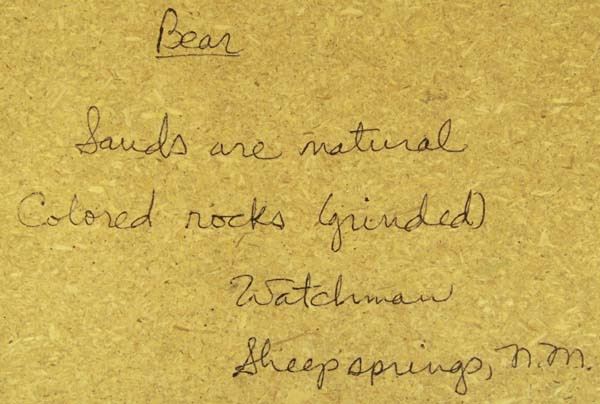 Bear
Sands are natural
Colored rocks (grinded)
Watchman
Sheepsprings, N.M.